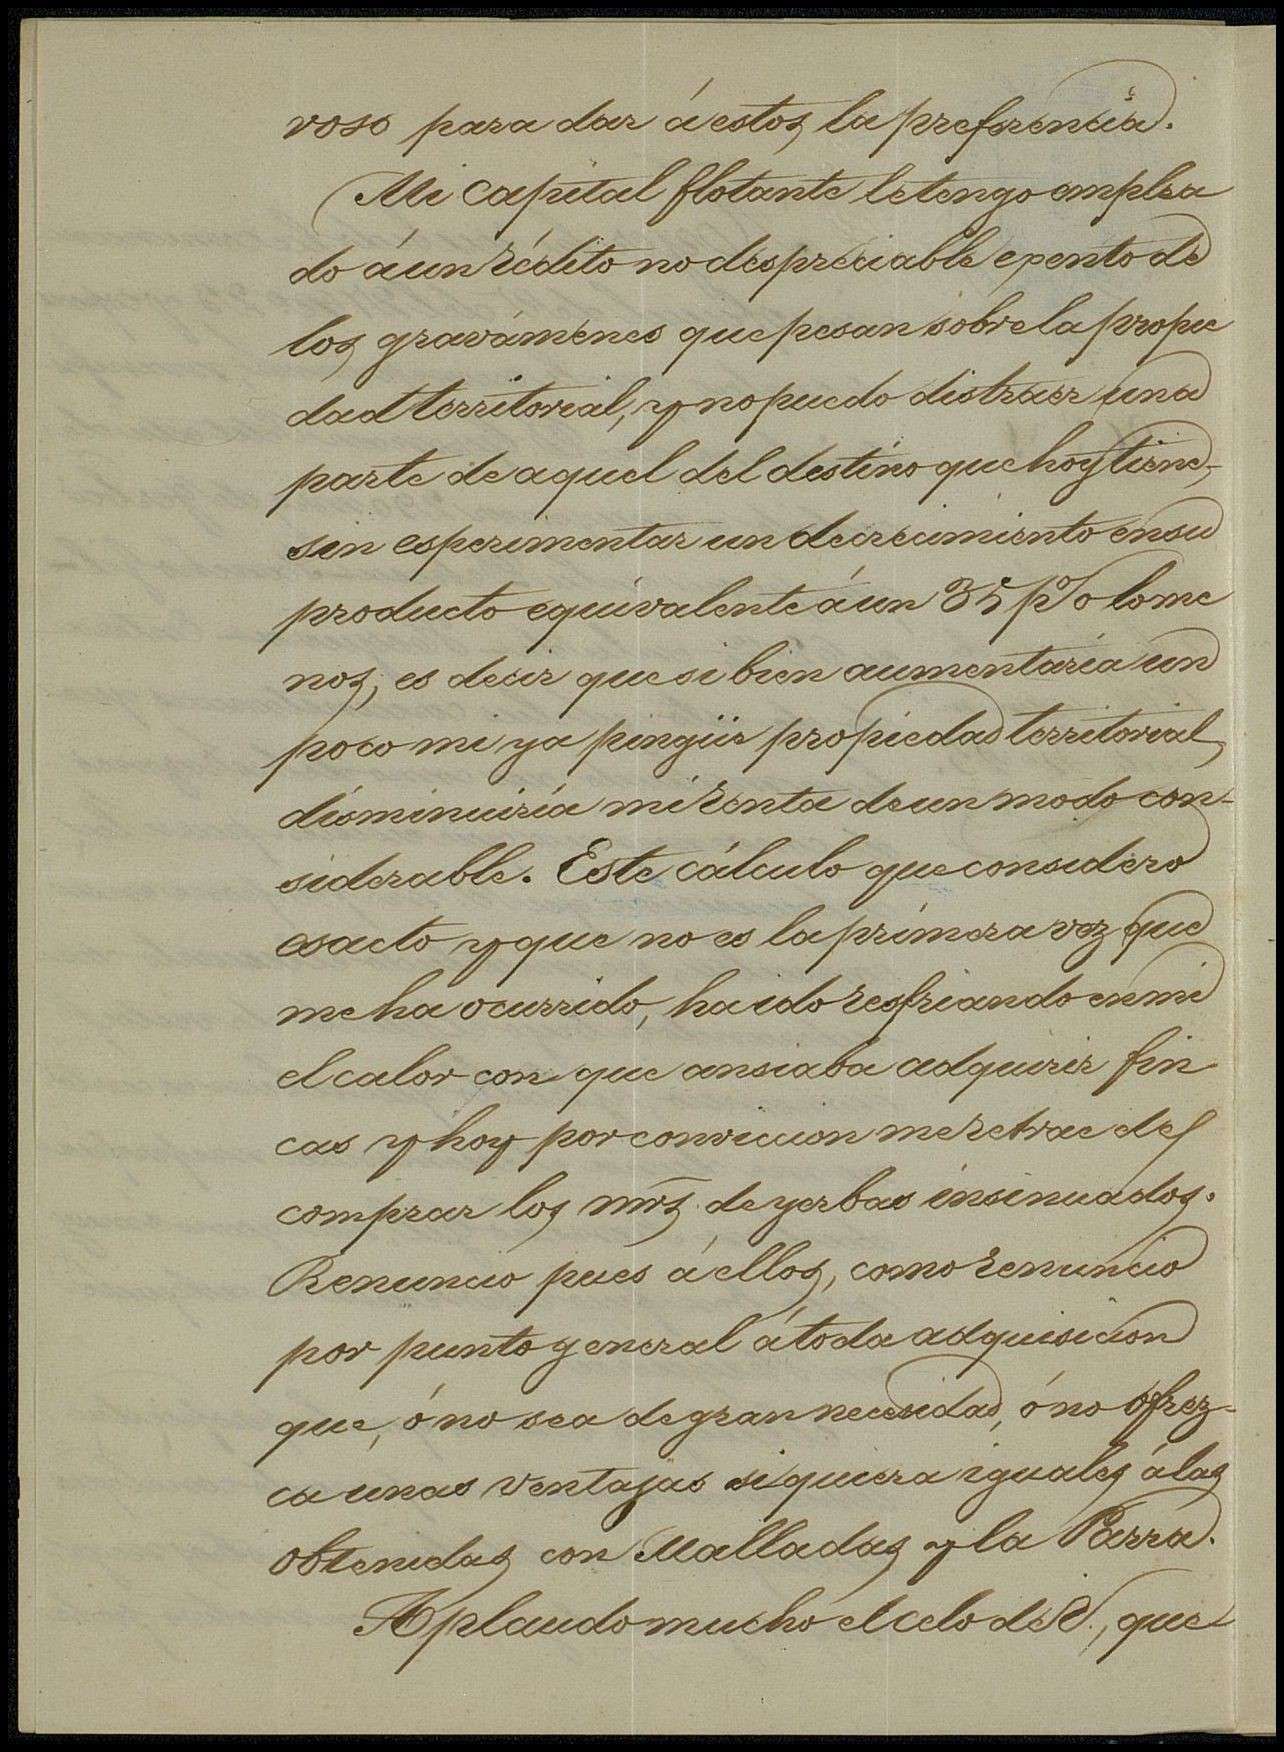 voso para dar á estos la preferencia.
Mi capital flotante le tengo emplea
do á un rédito no despreciable exento de
los gravámenes que pesan sobre la propie
dad territorial, y no puedo distraer una
parte de aquel del destino que hoy tiene,
sin esperimentar un decrecimiento en su
producto equivalente á un 35 p% o lo me
nos, es decir que si bien aumentaría un
poco mi ya pingüe propiedad territorial,
disminuiría mi renta de un modo con-
siderable. Este cálculo que considero
esacto y que no es la primera vez que
me ha ocurrido, ha ido resfriando en mi
el calor con que ansiaba adquirir fin
cas y hoy por conviccion me retrae de
comprar los mrs. de yerbas insinuados.
Renuncio pues á ellos, como renuncio
por punto general á toda adquisicion
que, ó no sea de gran necesidad, ó no ofrez-
ca unas ventajas siquiera iguales á las
obtenidas con Malladas y la Parra.
Aplaudo mucho el celo de V., que